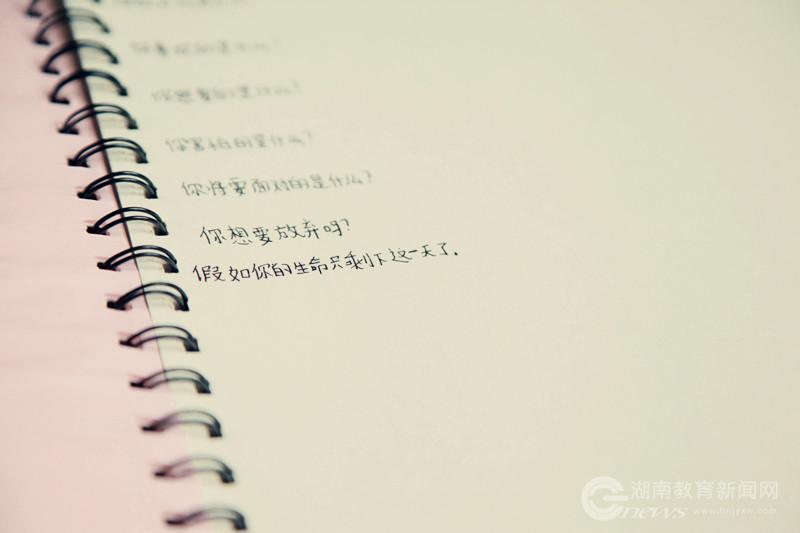 你想要的是什么?
你害怕的是什么?
你将要面对的是什么?
你想要放弃吗?
假如你的生命只剩下这一天了.
湖南教育新闻网
enews www.hnjyxw.com